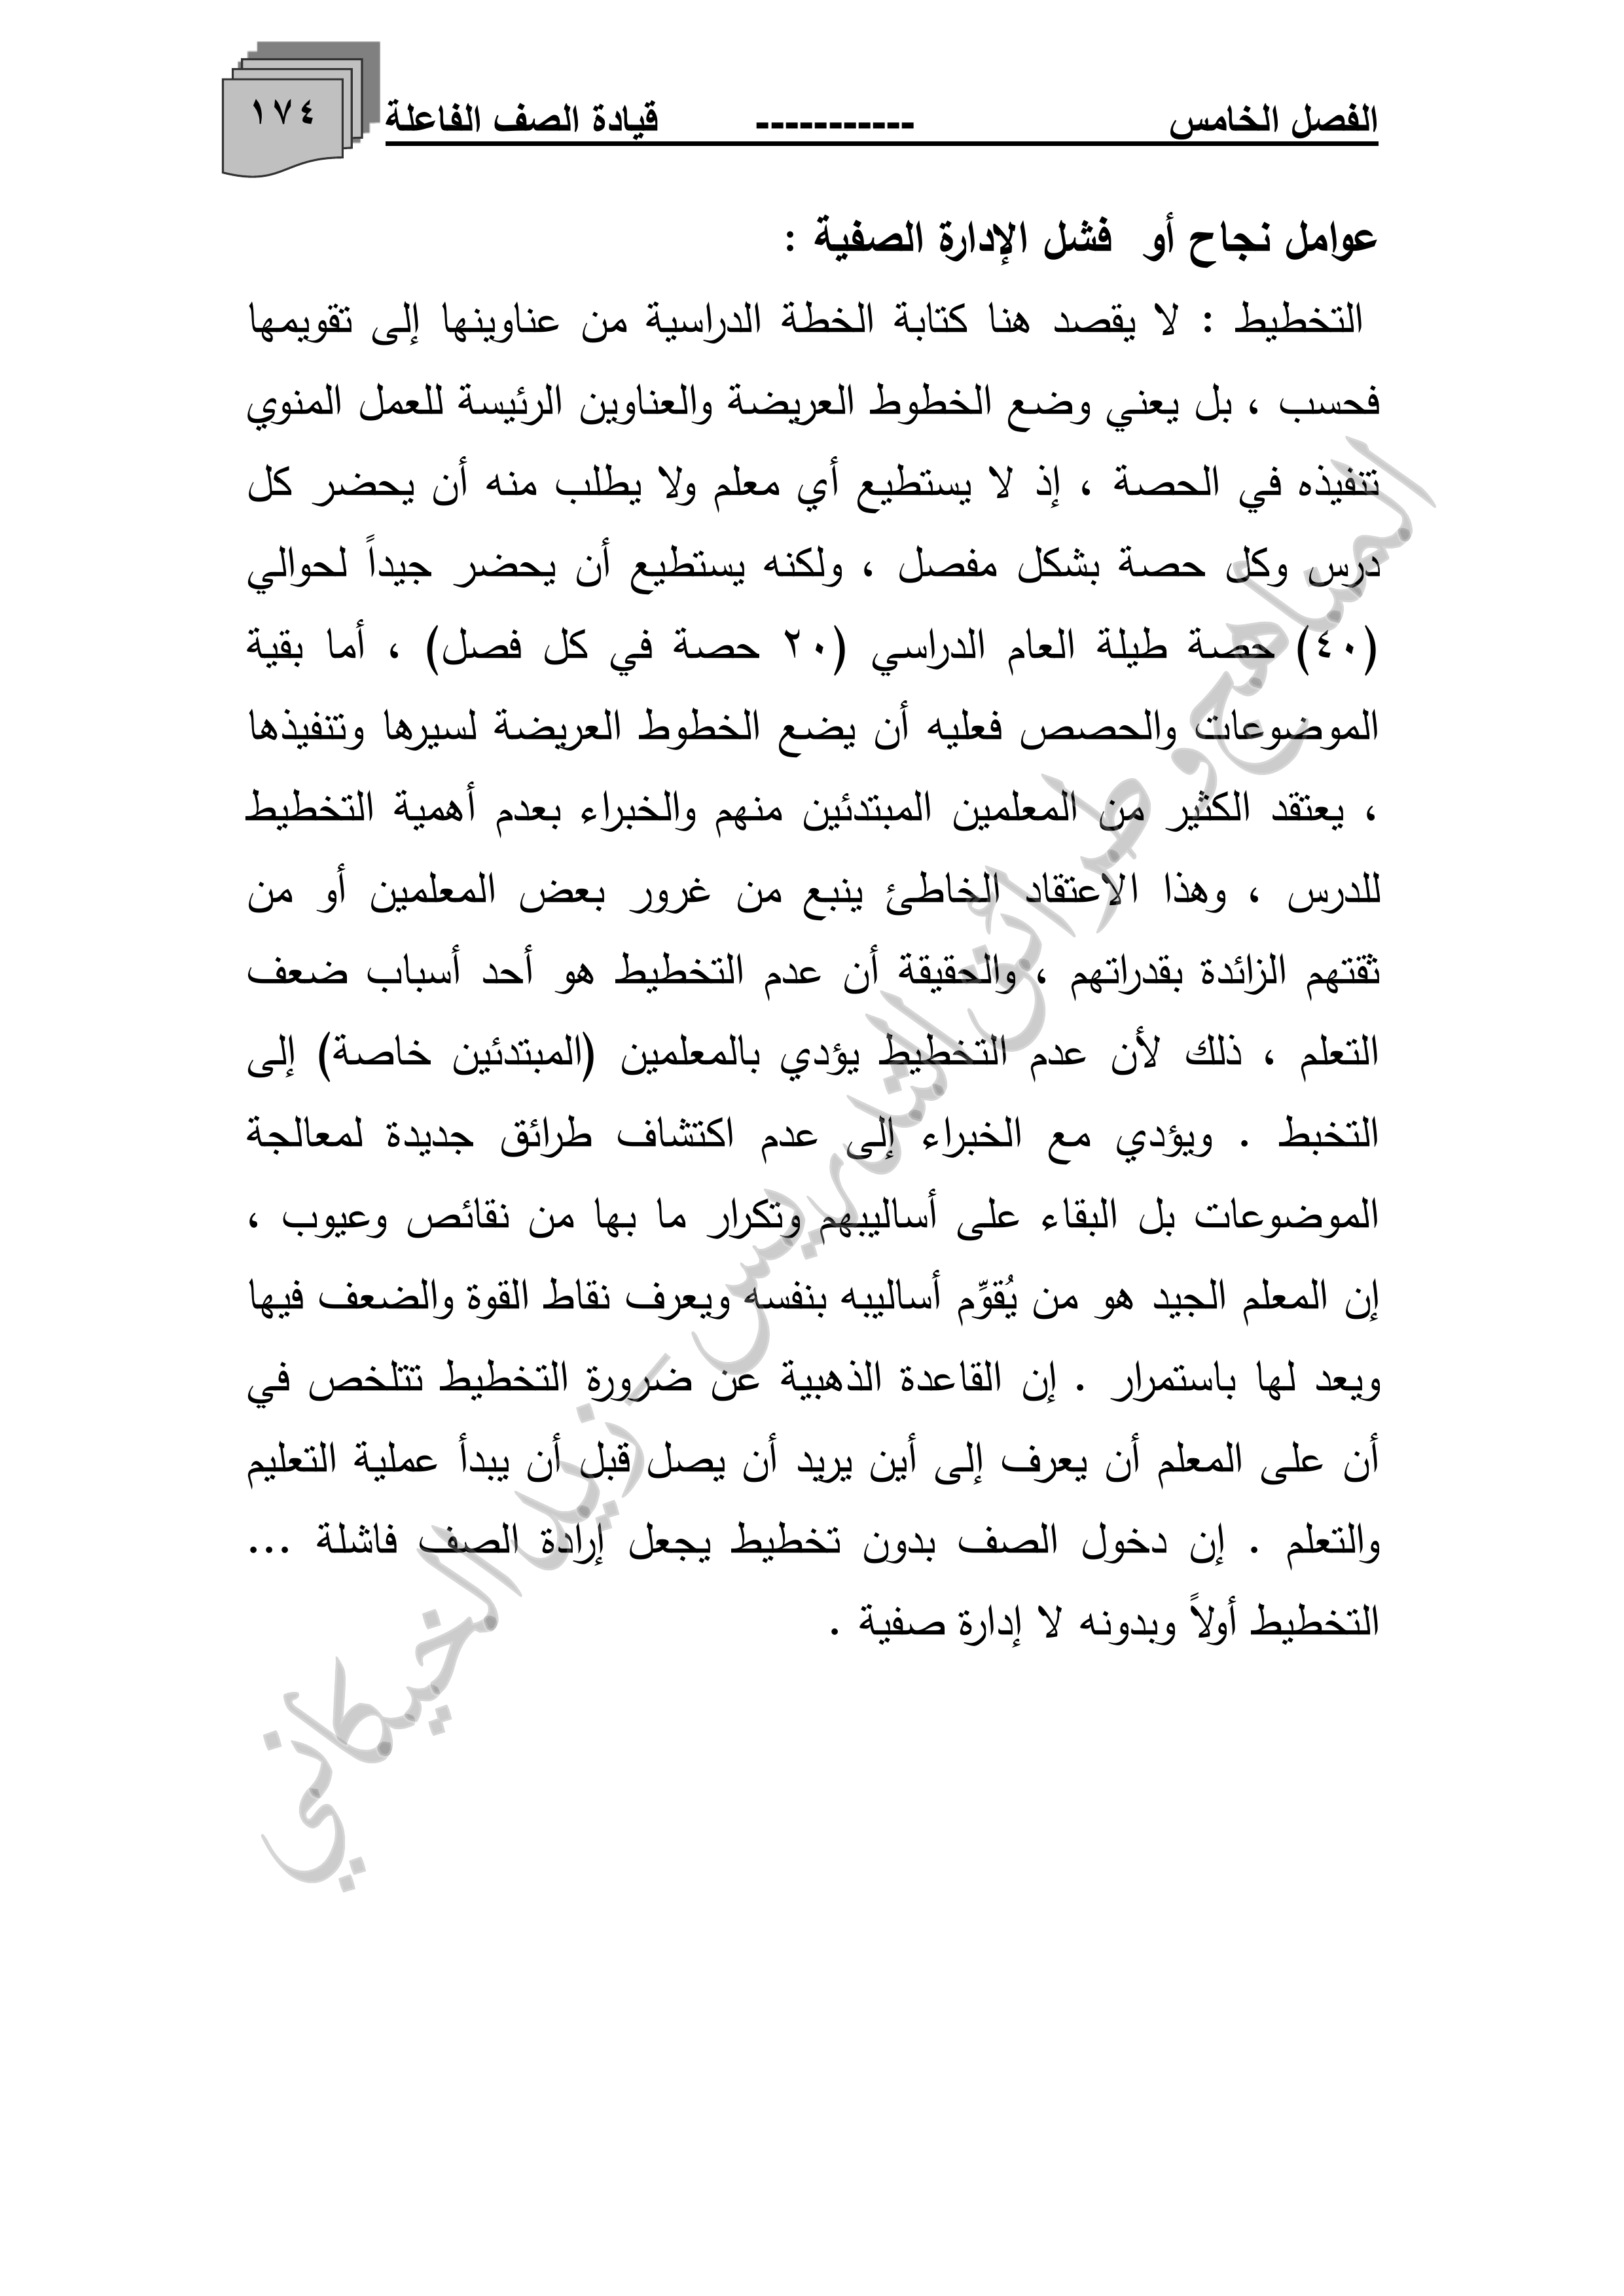 الفصل الخامس ----------- قيادة الصف الفاعلة ١٧٤
عوامل نجاح أو فشل الإدارة الصفية :
التخطيط : لا يقصد هنا كتابة الخطة الدراسية من عناوينها إلى تقويمها
فحسب ، بل يعني وضع الخطوط العريضة والعناوين الرئيسة للعمل المنوي
تنفيذه في الحصة ، إذ لا يستطيع أي معلم ولا يطلب منه أن يحضر كل
درس وكل حصة بشكل مفصل ، ولكنه يستطيع أن يحضر جيداً لحوالي
(٤٠) حصة طيلة العام الدراسي (٢٠ حصة في كل فصل) ، أما بقية
الموضوعات والحصص فعليه أن يضع الخطوط العريضة لسيرها وتنفيذها
، يعتقد الكثير من المعلمين المبتدئين منهم والخبراء بعدم أهمية التخطيط
للدرس ، وهذا الاعتقاد الخاطئ ينبع من غرور بعض المعلمين أو من
ثقتهم الزائدة بقدراتهم ، والحقيقة أن عدم التخطيط هو أحد أسباب ضعف
التعلم ، ذلك لأن عدم التخطيط يؤدي بالمعلمين (المبتدئين خاصة) إلى
التخبط . ويؤدي مع الخبراء إلى عدم اكتشاف طرائق جديدة لمعالجة
الموضوعات بل البقاء على أساليبهم وتكرار ما بها من نقائص وعيوب ،
إن المعلم الجيد هو من يُقوِّم أساليبه بنفسه ويعرف نقاط القوة والضعف فيها
ويعد لها باستمرار . إن القاعدة الذهبية عن ضرورة التخطيط تتلخص في
أن على المعلم أن يعرف إلى أين يريد أن يصل قبل أن يبدأ عملية التعليم
والتعلم . إن دخول الصف بدون تخطيط يجعل إرادة الصف فاشلة ...
التخطيط أولاً وبدونه لا إدارة صفية .
المناهج وطرائق التدريس - زيد الخيكاني